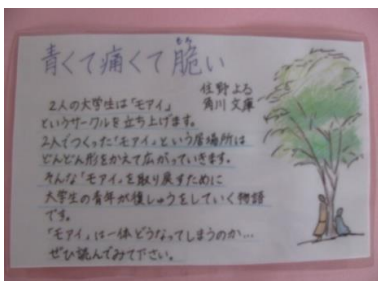 青くて痛くて脆い
もろ
住野よる
角川文庫
2人の大学生は「モアイ」
というサークルを立ち上げます。
2人でつくった「モアイ」という居場所は
どんどん形をかえて広がっていきます。
そんな「モアイ」を取り戻すために
大学生の青年が復しゅうをしていく物語
です。
「モアイ」は一体どうなってしまうのか…
ぜひ読んでみて下さい。